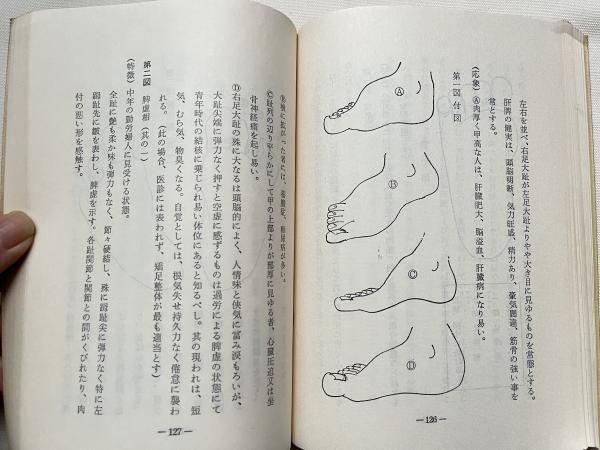 左右を並べ、右足大趾が左足大趾よりやや大き目に見ゆるものを常態とする。
肝脾の健実は、頭脳明晰、気力旺盛、精力あり、豪気闊達、筋骨の強い事を
常とする。
(応象) Ⓐ肉厚く甲高な人は、肝臓肥大、脳溢血、肝臓病になり易い。
第一図 付図
Ⓐ
Ⓑ
Ⓒ
Ⓓ
—126—
Ⓑ横に拡がった者には、糖尿病が多い。
Ⓒ趾列の辺り平らかにして甲の上部よりが部厚に見ゆる者、心臓圧迫又は坐
骨神経痛を起し易い。
Ⓓ右足大趾の殊に大なるは頭脳的によく、人情味と侠気に富み涙もろいが、
大趾尖端に弾力なく押すと空虚に感ずるものは過労による脾虚の状態にて
青年時代の結核に乗じられ易い体位にあると知るべし。其の現われは、短
気、むら気、物臭くなる。自覚としては、根気失せ持久力なく倦怠に襲わ
れる。(此の場合、医診には表われず、矯足整体が最も適当とす)
第二図 脾虚相(其の一)
(特徴) 中年の勤労婦人に見受ける状態。
全趾に艶も柔か味も弾力もなく、節々硬結し、殊に拇趾尖に弾力なく特に左
拇趾先に皺を表わし、脾虚を示す。各趾関節と関節との間がくびれたり、肉
付の悪い形を感触す。
—127—